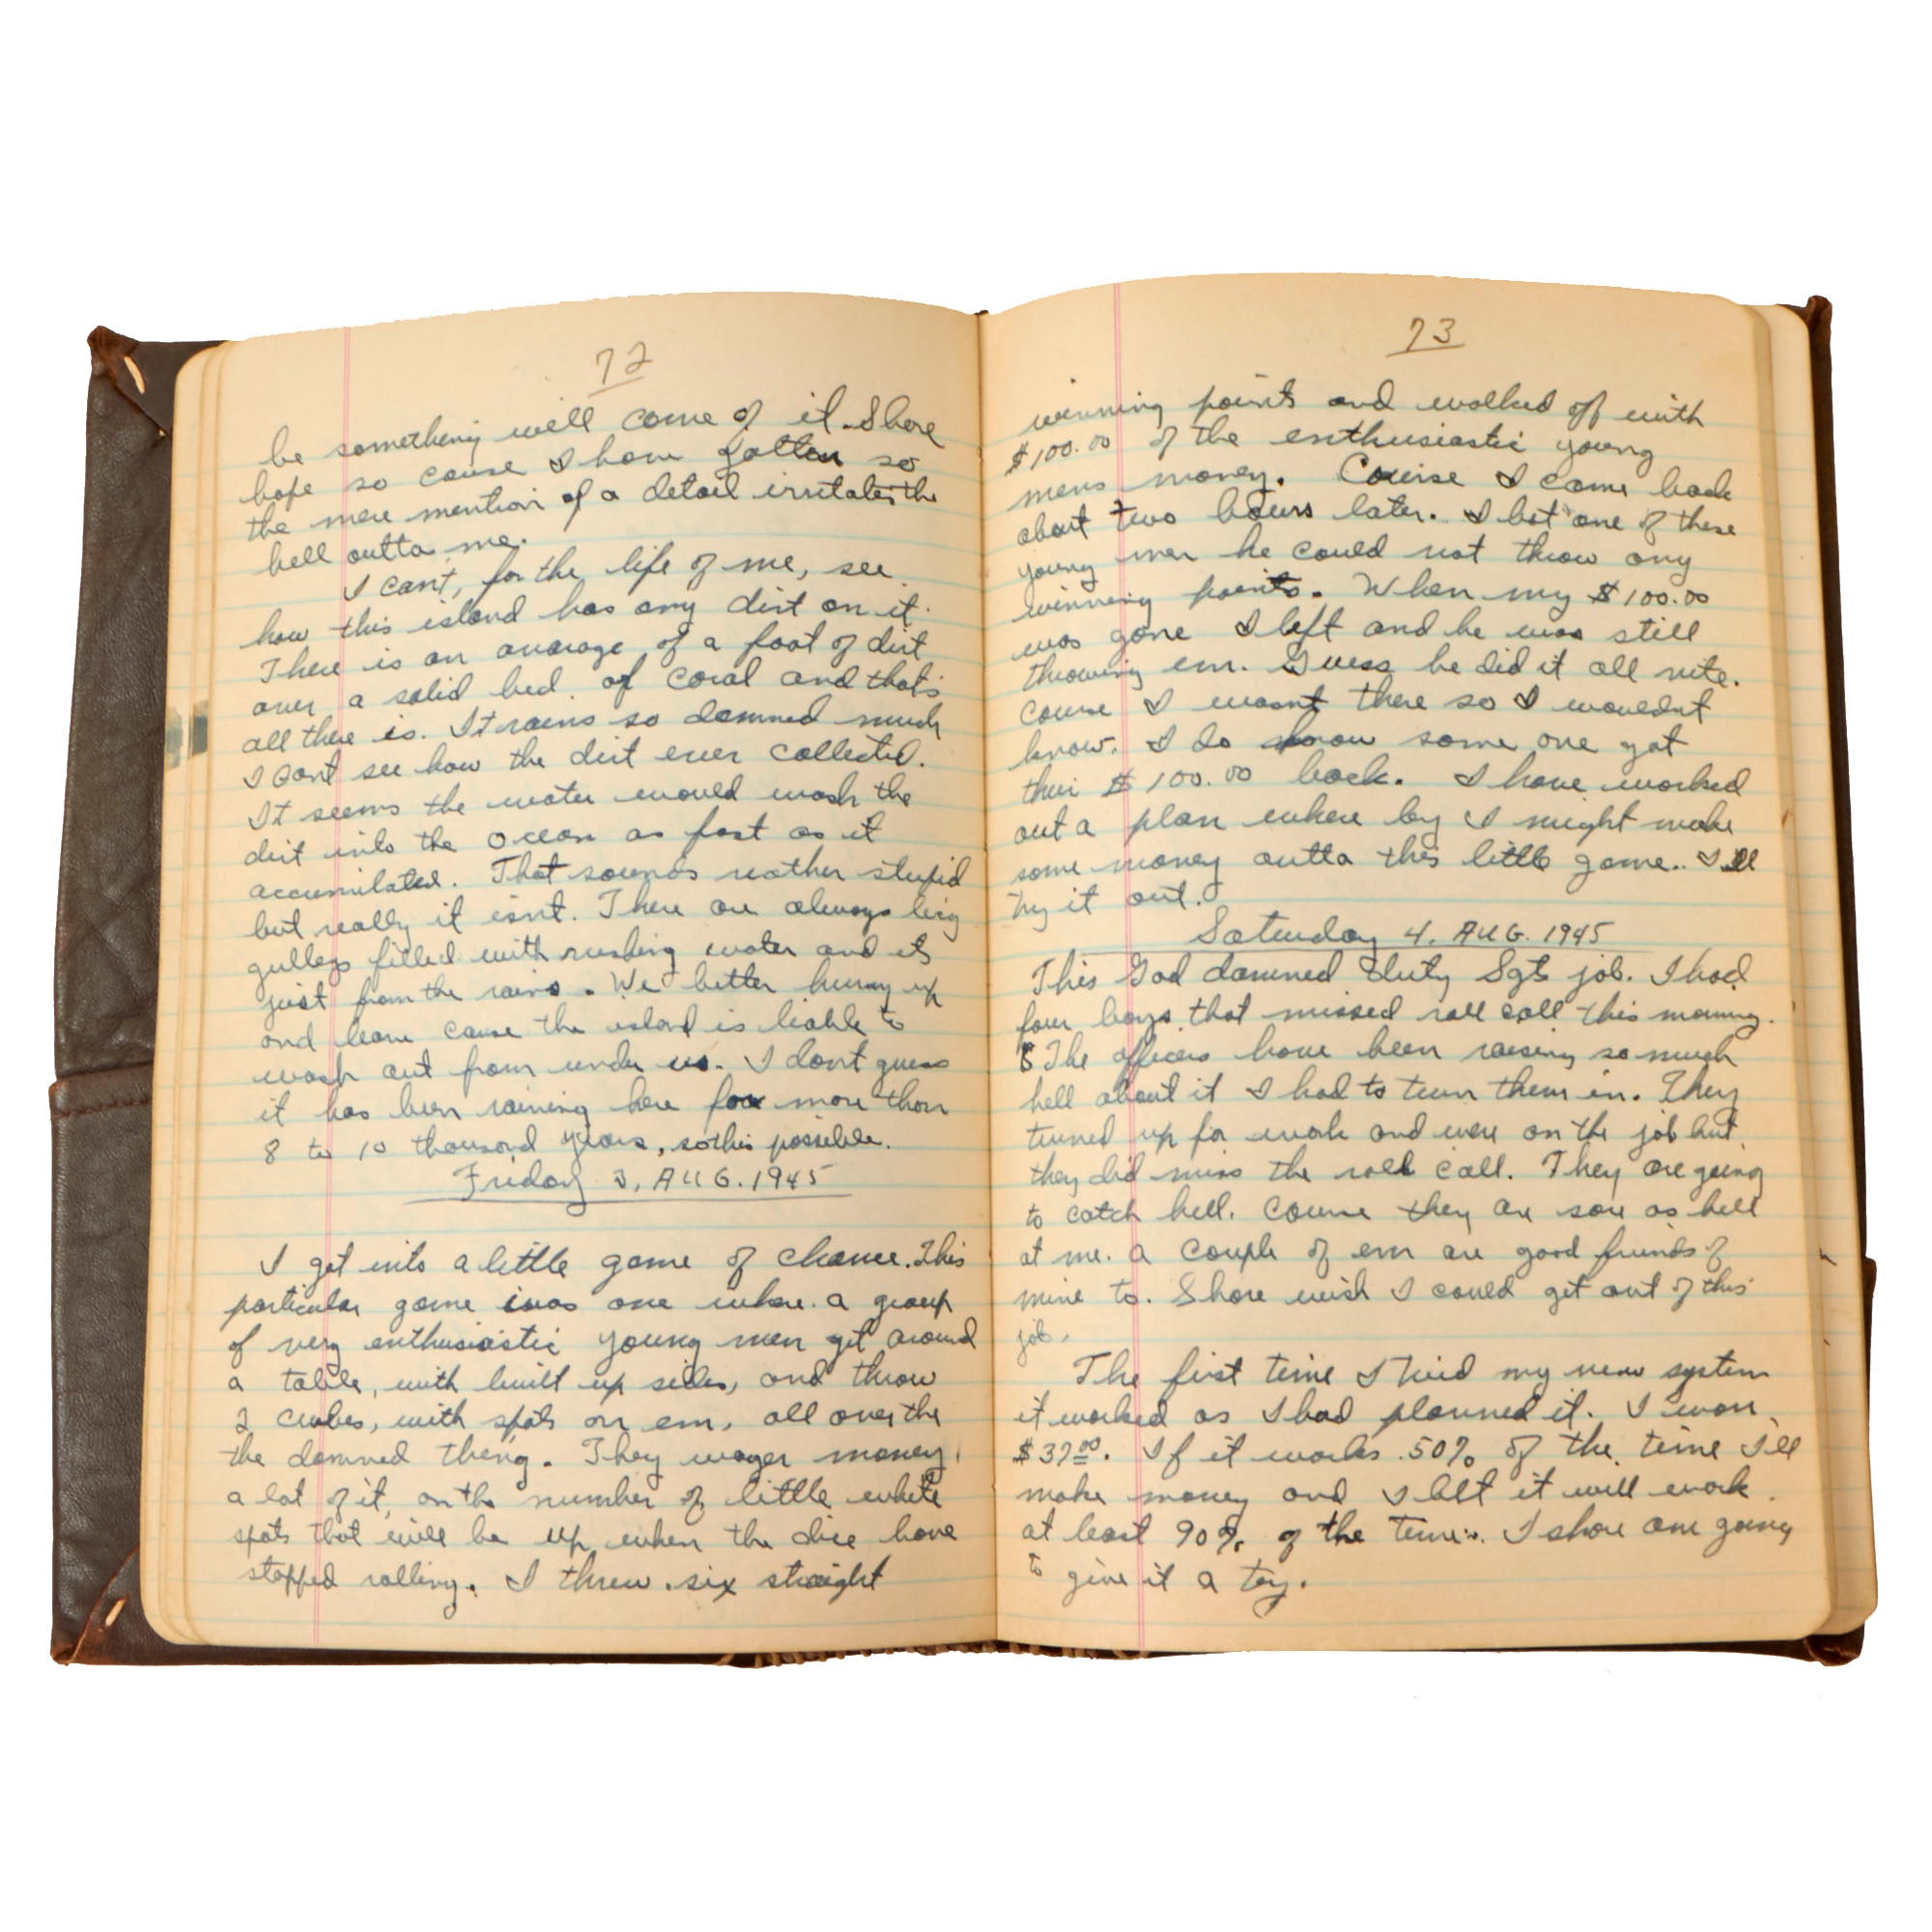 72
be something will come of it. Shore
hope so cause I have gotten so
the mere mention of a detail irritates the
hell outta me.
I cant, for the life of me, see
how this island has any dirt on it.
There is an average of a foot of dirt
over a solid bed of coral and that's
all there is. It rains so damned much
I cant see how the dirt ever collected.
It seems the water would wash the
dirt into the ocean as fast as it
accumilated. That sounds rather stupid
but really it isnt. There are always big
gulleys filled with rushing water and its
just from the rains. We better hurry up
and leave cause the island is liable to
wash out from under us. I dont guess
it has been raining here for more than
8 to 10 thousand years, so this possible.
Friday 3, AUG. 1945
I got into a little game of chance. This
particular game was one where a group
of very enthusiastic young men get around
a table, with built up sides, and throw
2 cubes, with spots on em, all over the
the damned thing. They wager money,
a lot of it, on the number of little white
spots that will be up when the dice have
stopped rolling. I threw six straight
73
winning points and walked off with
$100.00 of the enthusiastic young
mens money. Course I came back
about two hours later. I bet one of these
young men he could not throw any
winning points. When my $100.00
was gone I left and he was still
throwing em. Guess he did it all nite.
Course I wasnt there so I wouldnt
know. I do know some one got
their $100.00 back. I have worked
out a plan where by I might make
some money outta this little game. I'll
try it out.
Saturday 4. AUG. 1945
This God damned duty Sgts job. I had
four boys that missed roll call this morning.
The officers have been raising so much
hell about it I had to turn them in. They
turned up for work and were on the job but
they did miss the roll call. They are going
to catch hell. Course they are sore as hell
at me. A couple of em are good friends of
mine to. Shore wish I could get out of this
job.
The first time I tried my new system
it worked as I had planned it. I won
$37.00. If it works 50% of the time I'll
make money and I bet it will work
at least 90% of the time. I shore am going
to give it a try.